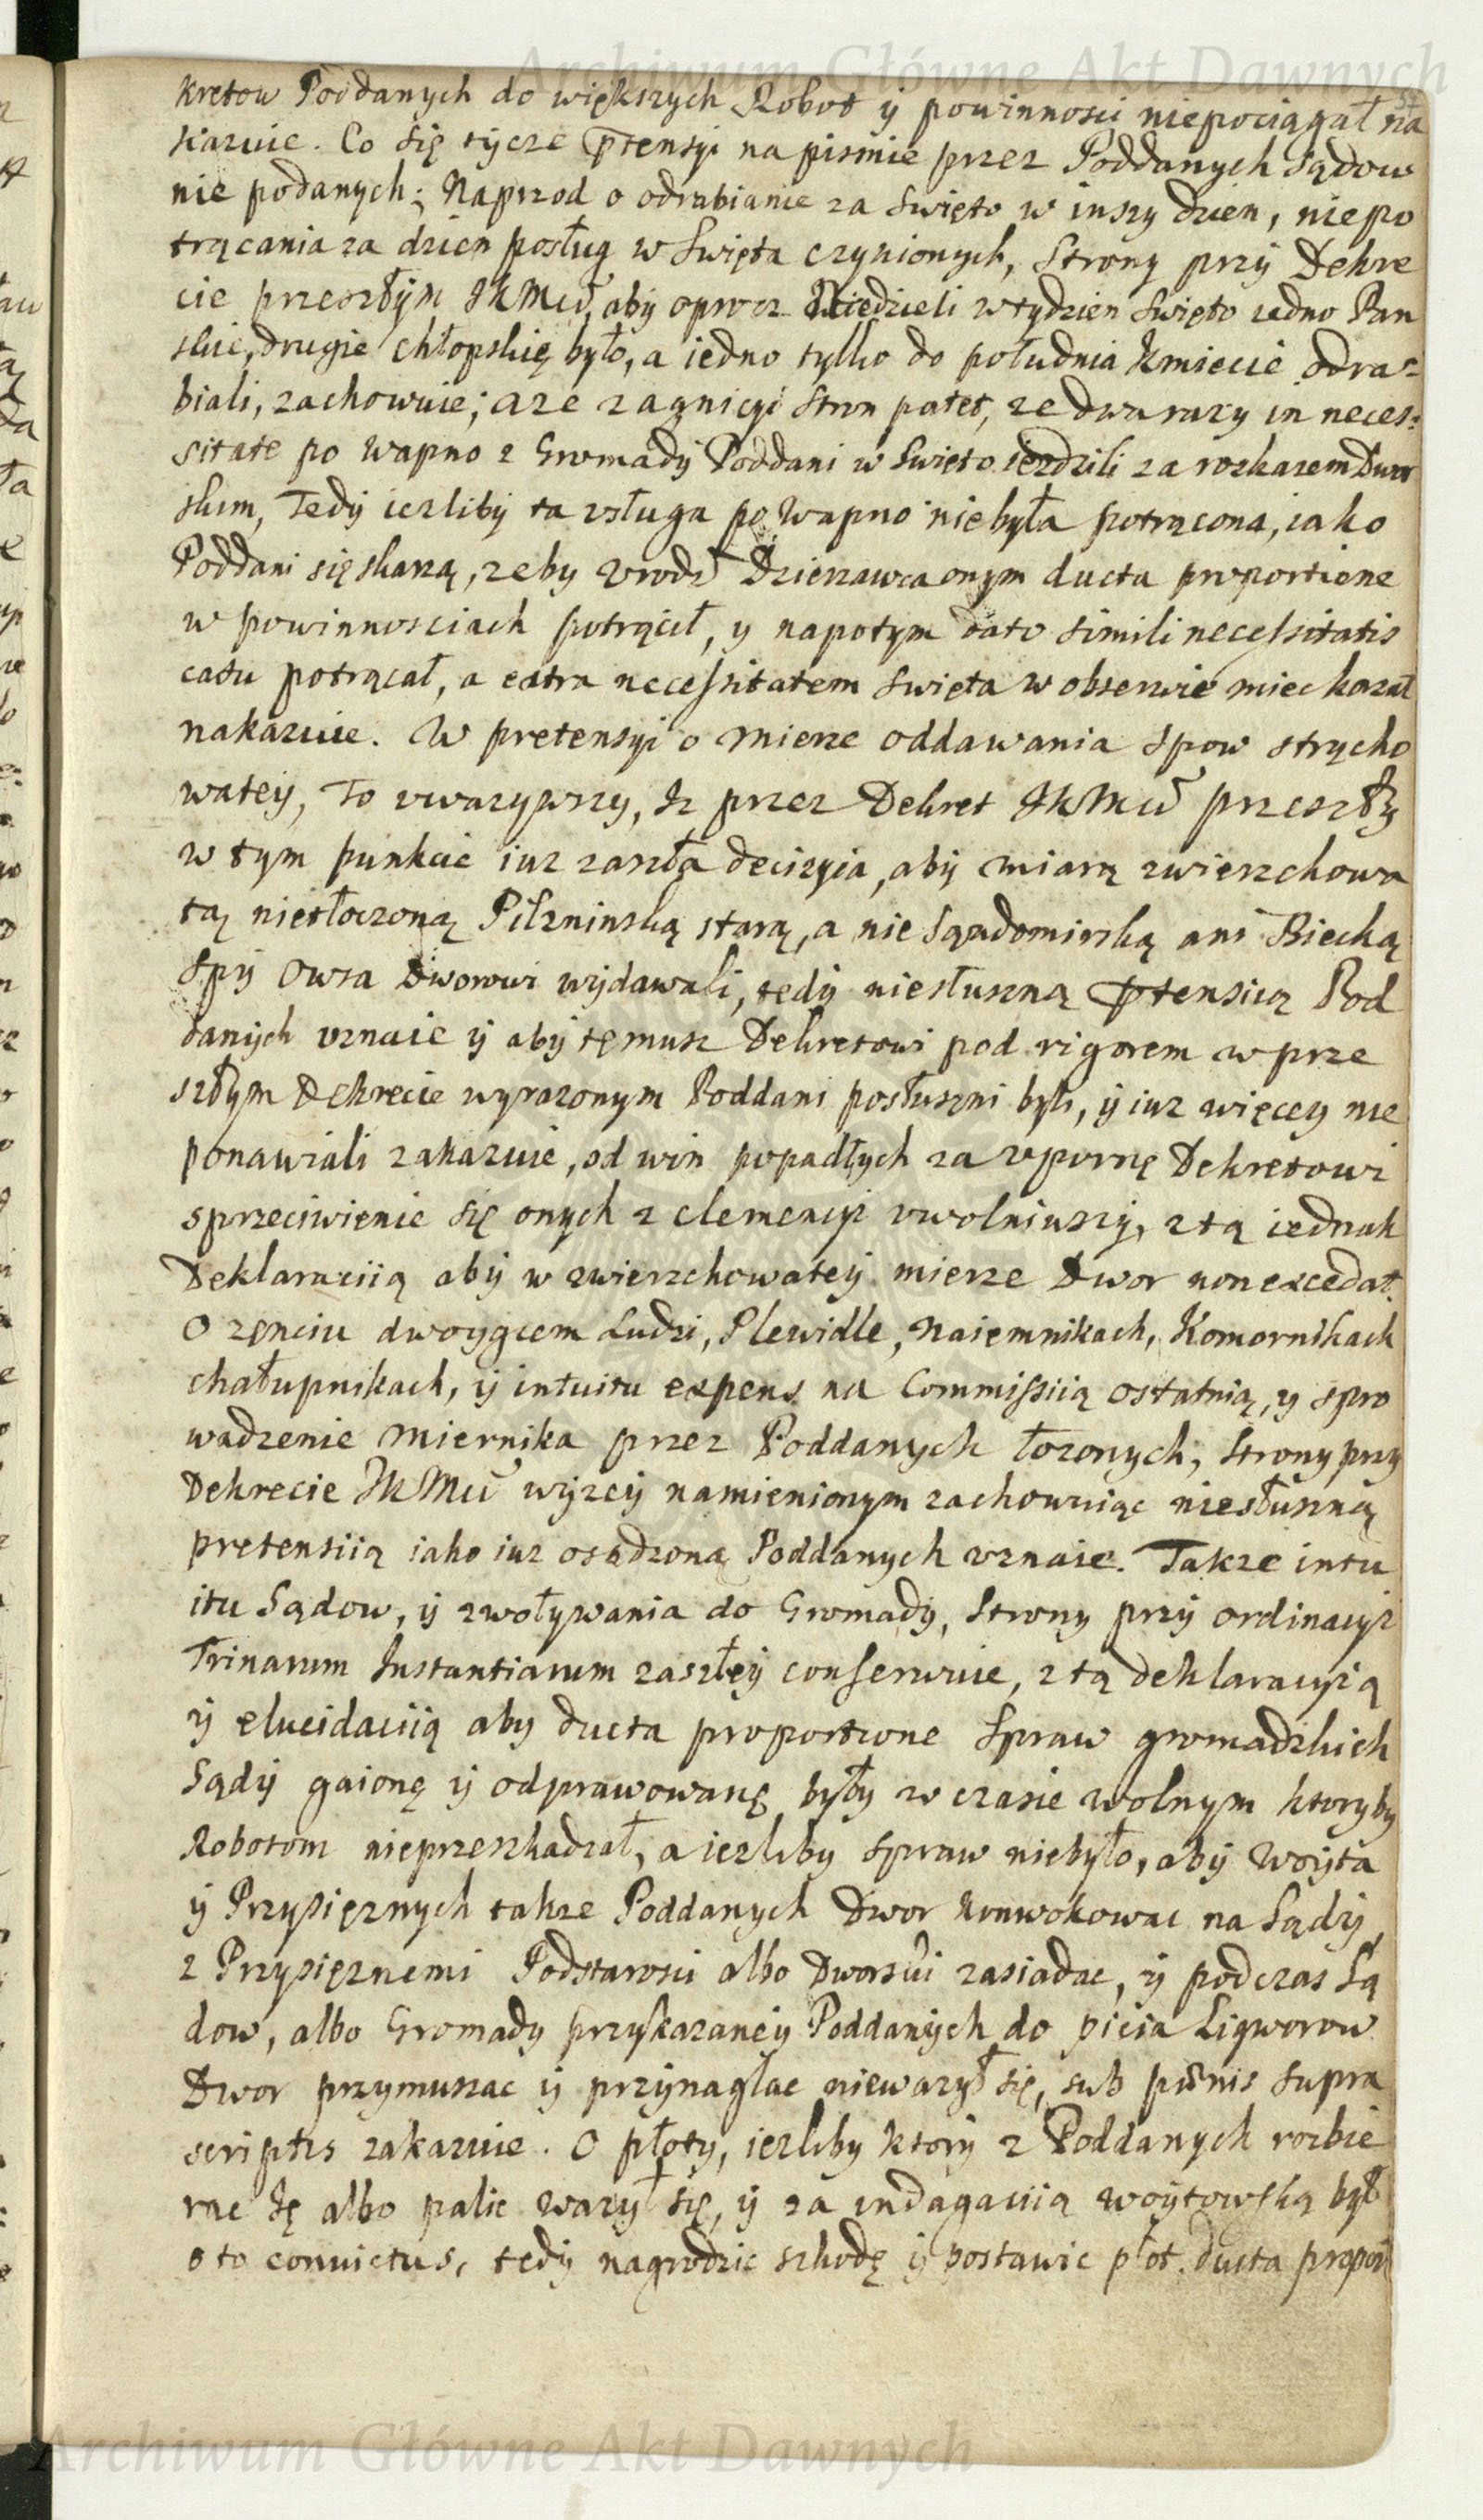 Archiwum Główne Akt Dawnych
kretow Poddanych do większych Robot ÿ powinnosci niepociągał na
kazuie. Co się tycze ptensyi na pismie przez Poddanych sądow
nie podanych; Naprzod o odrabianie za swięto w inszy dzien, niepo
trącania za dzien posług w Swięta czynionych, Strony przÿ Dekre
cie przeszłÿm JKMci, abÿ oprocz Niedzieli w tydzien swięto iedno Pan
skie, drugie chłopskię było, a iedno tylko do południa Kmiecie odra=
biali, zachowuie; aże z agnicyi stron patet, że dwa razy in neces:
sitate po wapno z Gromadÿ Poddani w swięto iezdzili za rozkazem Dwor
skim, Tedÿ iezlibÿ ta vsługa po wapno niebyła potrącona, iako
Poddani się skarzą, zeby Vrodz Dzierzawca onym ducta proportione
w powinnosciach potrącił, y napotym dato simili necessitatis
casu potrącał, a extra necessitatem swięta w obserwie miec kazał
nakazuie. W pretensyi o mierze oddawania spow strycho
wateÿ, To vwazywszy, Iz przez Dekret JKMci przeszły
w tym punkcie iuz zaszła decizyia, abÿ miarą zwierzchowa
tą nietłoczoną Pilzninską starą, a nie Sądomirską ani Biecką
Spÿ Owsa Dworowi wÿdawali, tedÿ niesłuszną ptensią Pod
danÿch vznaie ÿ abÿ temusz Dekretowi pod rigorem w prze
szłym Dekrecie wyrazonym Poddani posłuszni byli, ÿ iuz więcey nie
ponawiali zakazuie, od win popadłych za vpornę Dekretowi
sprzeciwienie się onych z clemencyi vwolniwszÿ, z tą iednak
Deklaraciią abÿ w zwierzchowateÿ mierze Dwor non excedał.
O zęnciu dwoygiem Ludzi, Plewidle, Naiemnikach, Komornikach
chałupnikach, ÿ intuitu expens na Commissiią ostatnią, y spro
wadzenie Miernika przez Poddanych łozonych, Strony przy
Dekrecie JKMci wÿzeÿ namienionym zachowuiąc niesłuszną
pretensiią iako iuz osądzoną Poddanych vznaie. Takze intu
itu Sądow, ÿ zwoływania do Gromady, Strony przÿ ordinacyi
Trinarum Instantiarum zaszłeÿ conserwuie, z tą deklaracyią
ÿ elucidaciią aby ducta proportione spraw gromadzkich
Sądÿ gaionę ÿ odprawowanę były w czasie wolnym ktoryby
Robotom nieprzeszkadzał, a iezliby spraw niebyło, abÿ Woÿta
ÿ Przysięznych takze Poddanych Dwor konwokowac na Sądÿ
z Przysięznemi Podstarosci albo Dworski zasiadac, ÿ podczas Są
dow, albo Gromady przykazaneÿ Poddanÿch do picia Liqworow
Dwor przymuszac ÿ przÿnaglac niewazył się, sub pœnis supra
scriptis zakazuie. O płoty, iezliby ktorÿ z Poddanych rozbie
rac ię albo palic wazył się, ÿ za indagaciią woÿtowską był
o to convictus, tedÿ nagrodzic szkodę ÿ postawic płot. ducta propor
Archiwum Główne Akt Dawnych